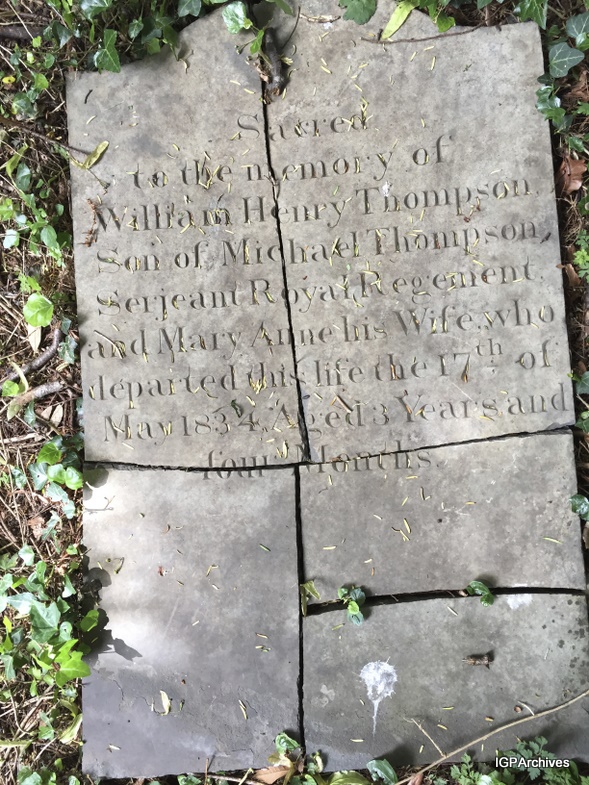 Sacred
to the memory of
William Henry Thompson,
Son of Michael Thompson,
Serjeant Royal Regement,
and Mary Anne his Wife, who
departed this life the 17th of
May 1834, Aged 3 Years and
four Months.
IGPArchives